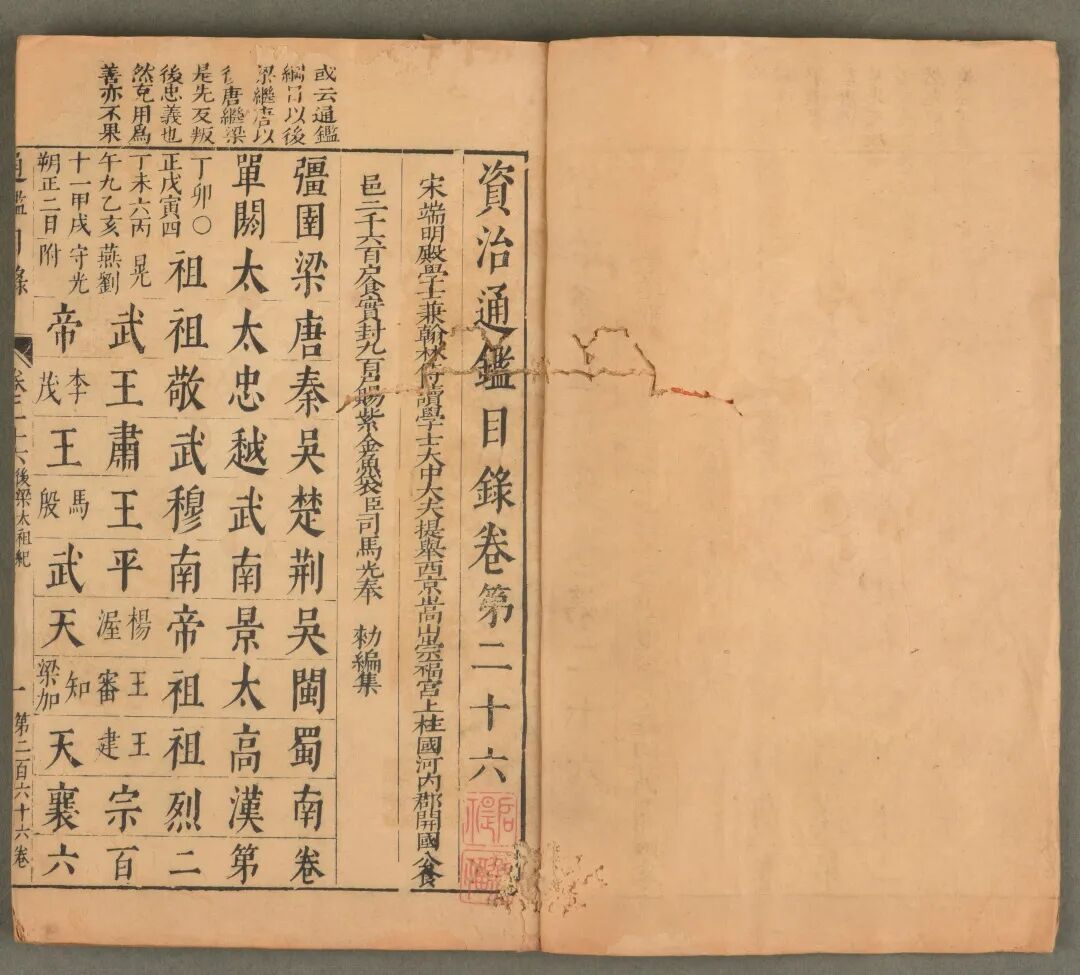 或云通鑑
綱目以後
梁繼唐以
後唐繼梁
是先反叛
後忠義也
然充用爲
善亦不果
資治通鑑目錄卷第二十六
宋端明殿學士兼翰林侍讀學士大中大夫提舉西京嵩山崇福宮上柱國河內郡開國公食
邑二千六百户食實封九百户賜紫金魚袋臣司馬光奉 勑編集
彊圉梁唐秦吳楚荆吳閩蜀南卷
單閼太太忠越武南景太高漢第
丁卯〇
正戊寅四
祖祖敬武穆南帝祖祖烈二
丁未六丙晃
午九乙亥燕劉
武王肅王平
楊渥
王審
王建
宗百
十一甲戌守光
朔正二日附
帝
李茂
王
馬殷
武天
知
梁加
天襄六
通鑑目錄 卷二十六 後梁太祖紀 一 第二百六十六卷